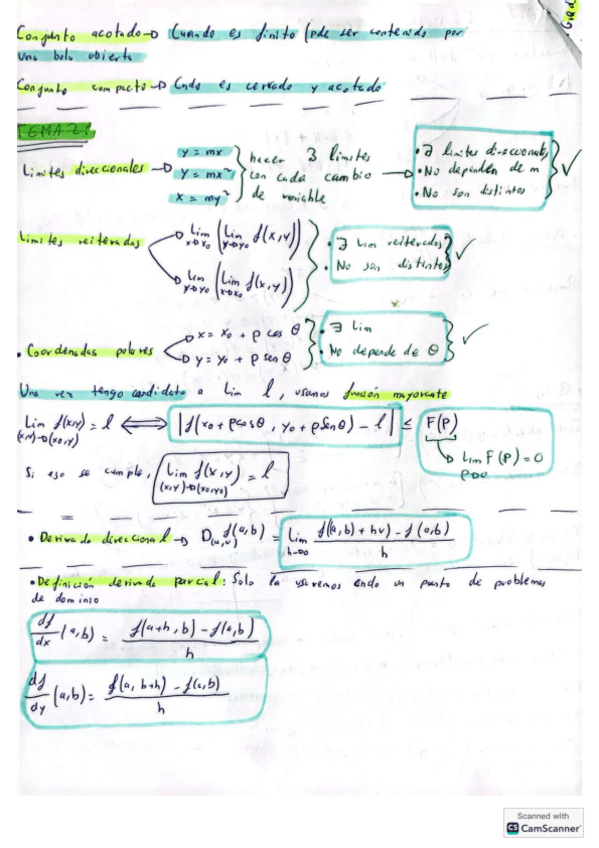 Conjunto acotado → Cuando es finito (pde ser contenido por
una bola abierta
Conjunto compacto → Cndo es cerrado y acotado
TEMA 2:
Límites direccionales → y = mx
y = mx²
x = my²
hacer 3 límites
con cada cambio →
de variable
• ∃ límites direccionales
• No dependen de m
• No son distintos
✓
Límites reiterados
Lim x→x₀ (Lim y→y₀ f(x,y))
Lim y→y₀ (Lim x→x₀ f(x,y))
• ∃ Lim reiterados
• No son distintos
✓
• Coordenadas polares
x = x₀ + ρ cos θ
y = y₀ + ρ sen θ
• ∃ Lim
• No depende de θ
✓
Una vez tengo candidato a lim l, usamos función mayorante
Lim f(x,y) = l ⟺ |f(x₀ + ρcosθ, y₀ + ρsenθ) - l| ≤ F(ρ)
(x,y)→(x₀,y₀)
Lim F(ρ) = 0
ρ→0
Si eso se cumple, Lim f(x,y) = l
(x,y)→(x₀,y₀)
• Derivada direccional → D(u,v) f(a,b) = Lim h→0 f((a,b) + hv) - f(a,b) / h
• Definición derivada parcial: Solo la usaremos cndo un punto de problemas
de dominio
df/dx (a,b) = f(a+h, b) - f(a,b) / h
df/dy (a,b) = f(a, b+h) - f(a,b) / h
Scanned with
CS CamScanner